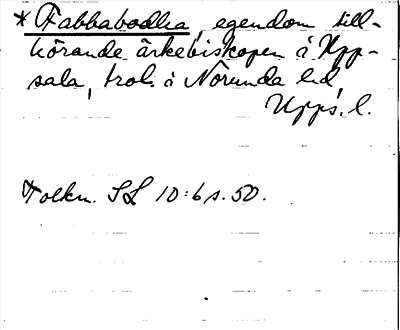 * Fabbabodha, egendom till-
hörande ärkebiskopen i Upp-
sala, trol. i Norunda hd,
Upps. l.
Folkn. SL 10:6 s. 50.